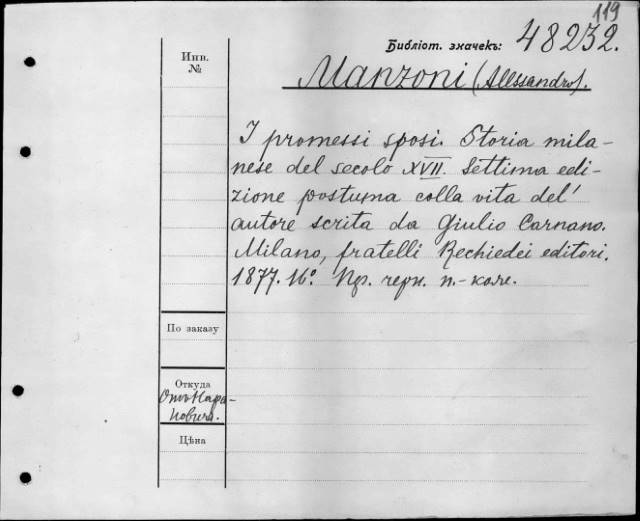 119
Библіот. значекъ: 48232.
Инв.
№
Manzoni (Alessandro).
I promessi sposi. Storia mila-
nese del secolo XVII. Settima edi-
zione postuma colla vita del'
autore scrita da Giulio Carnano.
Milano, fratelli Rechiedei editori.
1877. 16º. Пр. черн. п.-кол.
По заказу
Откуда
Отъ Кара-
новича.
Цѣна